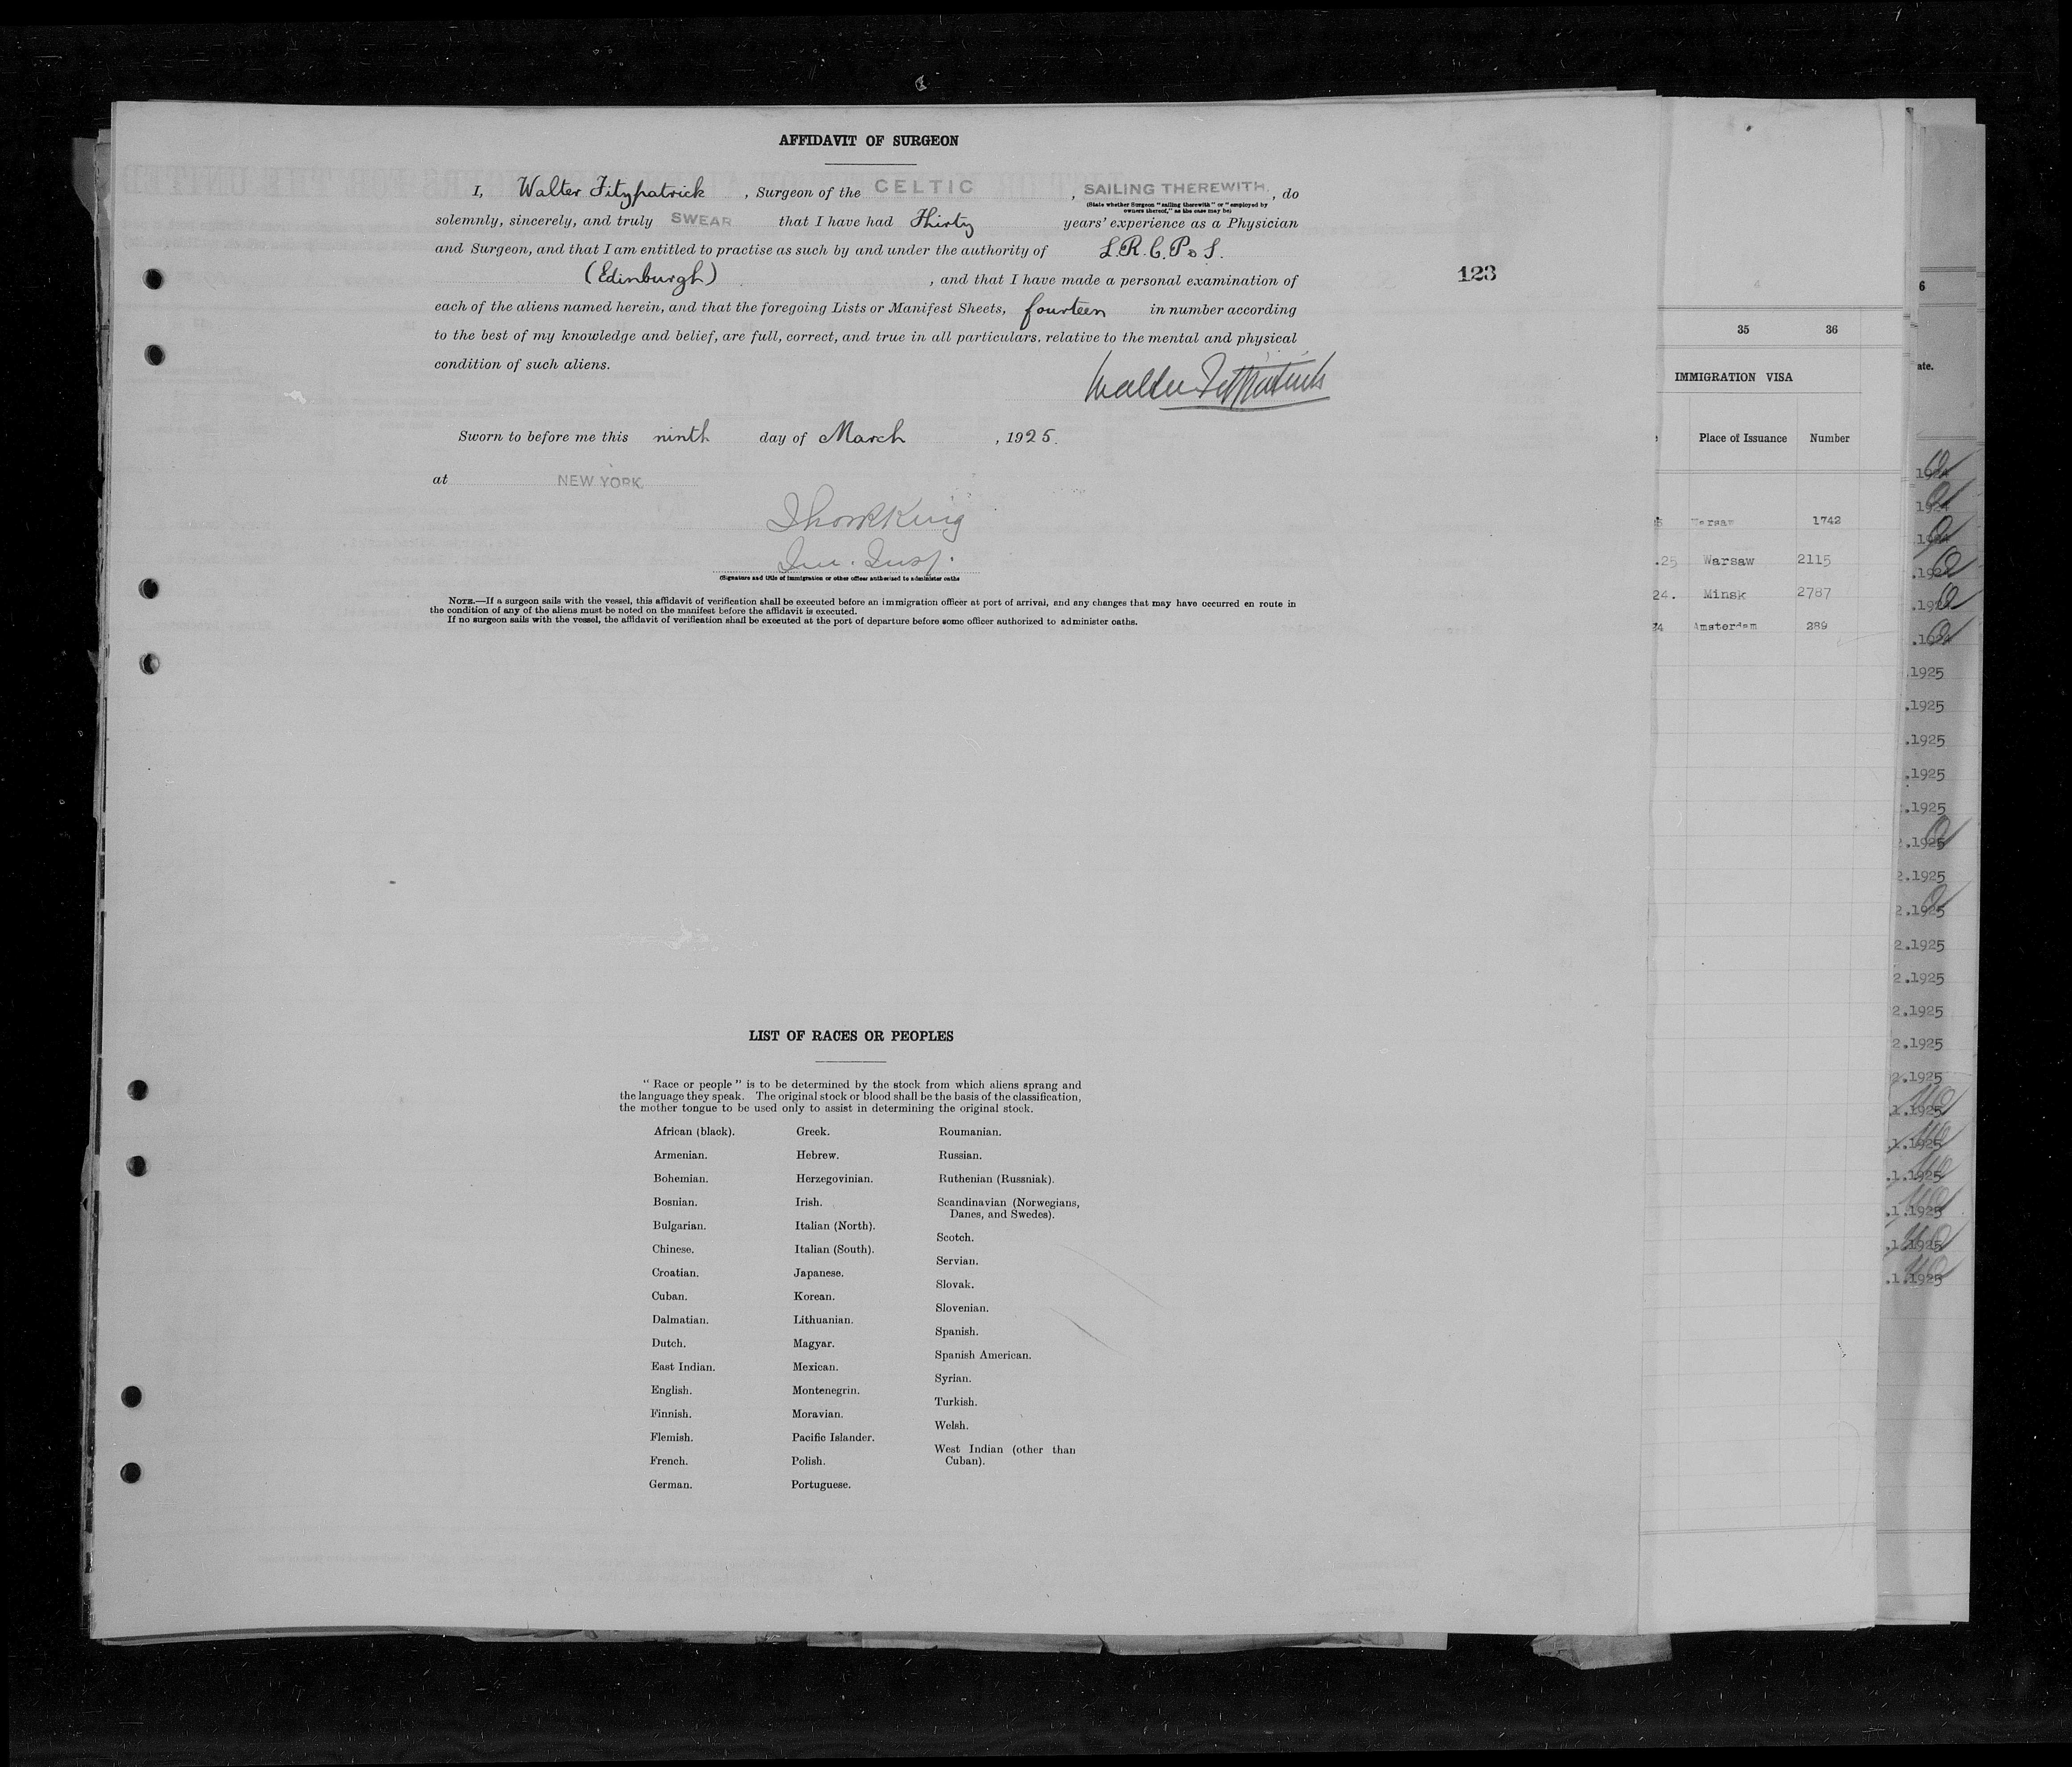 AFFIDAVIT OF SURGEON
I, Walter Fitzpatrick , Surgeon of the CELTIC , SAILING THEREWITH. , do
(State whether Surgeon "sailing therewith" or "employed by
owners thereof," as the case may be)
solemnly, sincerely, and truly SWEAR that I have had Thirty years' experience as a Physician
and Surgeon, and that I am entitled to practise as such by and under the authority of L.R.C.P & S.
(Edinburgh) , and that I have made a personal examination of
123
each of the aliens named herein, and that the foregoing Lists or Manifest Sheets, fourteen in number according
to the best of my knowledge and belief, are full, correct, and true in all particulars, relative to the mental and physical
condition of such aliens.
Walter Fitzpatrick
Sworn to before me this ninth day of March , 1925.
at NEW YORK.
King
Im. Insp.
(Signature and title of immigration or other officer authorised to administer oaths
NOTE.—If a surgeon sails with the vessel, this affidavit of verification shall be executed before an immigration officer at port of arrival, and any changes that may have occurred en route in
the condition of any of the aliens must be noted on the manifest before the affidavit is executed.
If no surgeon sails with the vessel, the affidavit of verification shall be executed at the port of departure before some officer authorized to administer oaths.
LIST OF RACES OR PEOPLES
"Race or people" is to be determined by the stock from which aliens sprang and
the language they speak. The original stock or blood shall be the basis of the classification,
the mother tongue to be used only to assist in determining the original stock.
African (black).
Armenian.
Bohemian.
Bosnian.
Bulgarian.
Chinese.
Croatian.
Cuban.
Dalmatian.
Dutch.
East Indian.
English.
Finnish.
Flemish.
French.
German.
Greek.
Hebrew.
Herzegovinian.
Irish.
Italian (North).
Italian (South).
Japanese.
Korean.
Lithuanian.
Magyar.
Mexican.
Montenegrin.
Moravian.
Pacific Islander.
Polish.
Portuguese.
Roumanian.
Russian.
Ruthenian (Russniak).
Scandinavian (Norwegians,
Danes, and Swedes).
Scotch.
Servian.
Slovak.
Slovenian.
Spanish.
Spanish American.
Syrian.
Turkish.
Welsh.
West Indian (other than
Cuban).
35 36
IMMIGRATION VISA
Place of Issuance Number
Warsaw 1742
.25 Warsaw 2115
24. Minsk 2787
24 Amsterdam 289
6
ate.
1924
1924
.1924
.1924
.1924
.1924
.1925
.1925
.1925
.1925
.1925
2.1925
2.1925
2.1925
2.1925
2.1925
2.1925
2.1925
2.1925
.1.1925
.1.1925
.1.1925
.1.1925
.1.1925
.1.1925